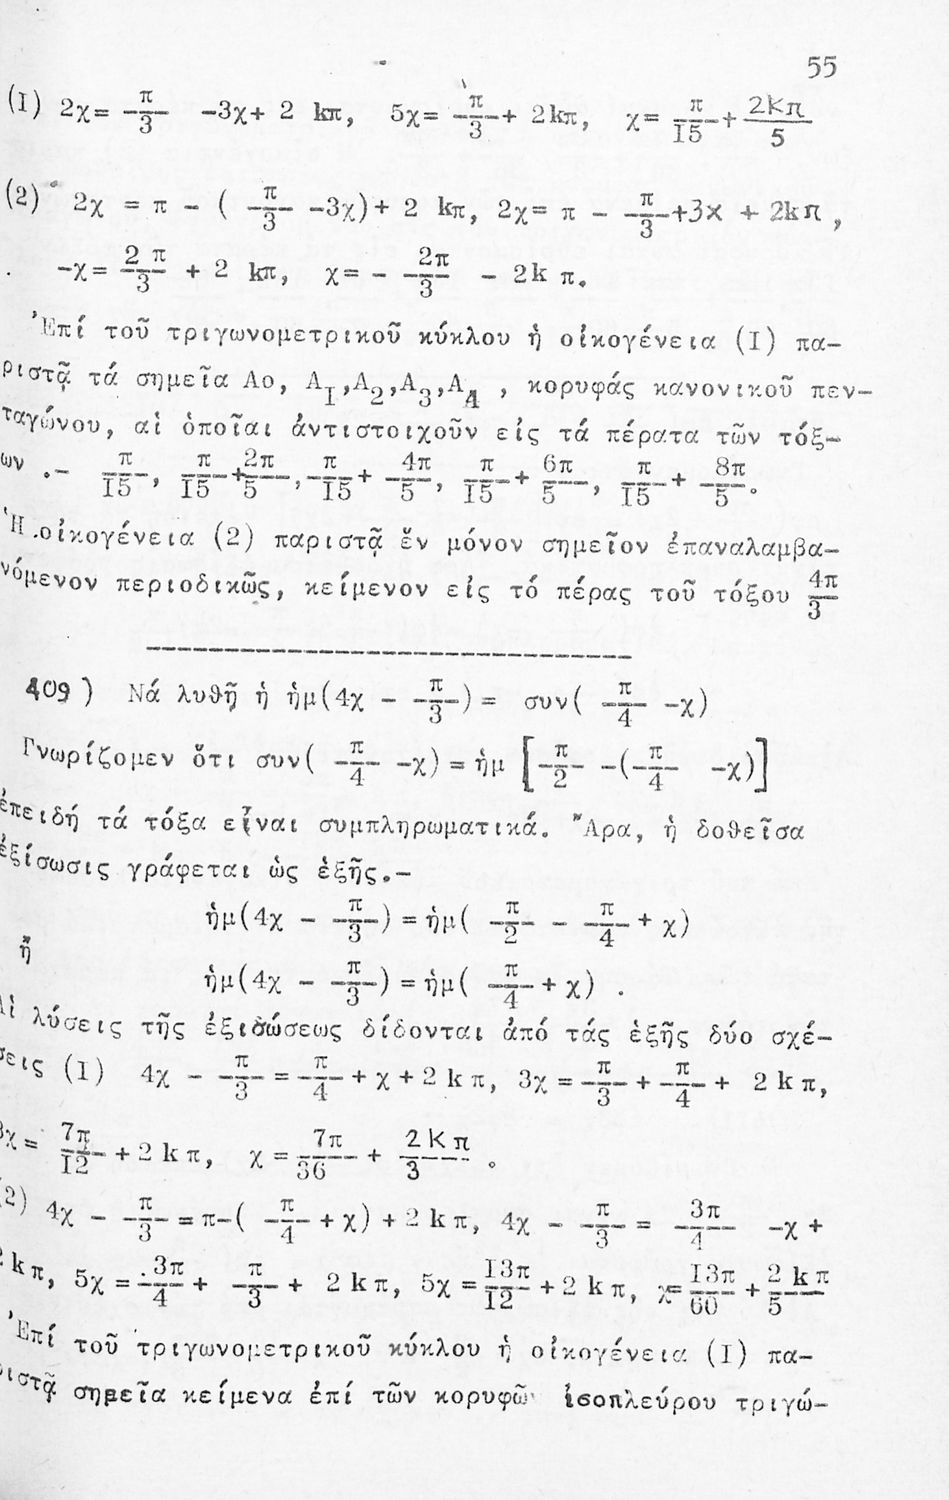 55
(I) 2χ= π/3 -3χ+ 2 kπ, 5χ= π/3 + 2kπ, χ= π/I5 + 2kπ/5
(2) 2χ = π - ( π/3 -3χ)+ 2 kπ, 2χ= π - π/3 +3x + 2kπ,
-χ= 2π/3 + 2 kπ, χ= - 2π/3 - 2k π.
Ἐπί τοῦ τριγωνομετρικοῦ κύκλου ἡ οἰκογένεια (I) πα-
ριστᾷ τά σημεῖα Αο, Α_I,Α_2,Α_3,Α_4 , κορυφάς κανονικοῦ πεν-
ταγώνου, αἱ ὁποῖαι ἀντιστοιχοῦν εἰς τά πέρατα τῶν τόξ-
ων .- π/I5, π/I5 + 2π/5, π/I5 + 4π/5, π/I5 + 6π/5, π/I5 + 8π/5.
Ἡ οἰκογένεια (2) παριστᾷ ἕν μόνον σημεῖον ἐπαναλαμβα-
νόμενον περιοδικῶς, κείμενον εἰς τό πέρας τοῦ τόξου 4π/3
409) Νά λυθῇ ἡ ἡμ(4χ - π/3) = συν( π/4 -χ)
Γνωρίζομεν ὅτι συν( π/4 -χ) = ἡμ [π/2 -(π/4 -χ)]
ἐπειδή τά τόξα εἶναι συμπληρωματικά. Ἄρα, ἡ δοθεῖσα
ἐξίσωσις γράφεται ὡς ἑξῆς.-
ἡμ(4χ - π/3) = ἡμ( π/2 - π/4 + χ)
ἤ
ἡμ(4χ - π/3) = ἡμ( π/4 + χ) .
Αἱ λύσεις τῆς ἐξισώσεως δίδονται ἀπό τάς ἑξῆς δύο σχέ-
σεις (I) 4χ - π/3 = π/4 + χ + 2 k π, 3χ = π/3 + π/4 + 2 k π,
3χ = 7π/I2 + 2 k π, χ = 7π/36 + 2kπ/3 .
(2) 4χ - π/3 = π-( π/4 + χ) + 2 k π, 4χ - π/3 = 3π/4 -χ +
2 k π, 5χ = 3π/4 + π/3 + 2 k π, 5χ = I3π/I2 + 2 k π, χ= I3π/60 + 2 k π/5
Ἐπί τοῦ τριγωνομετρικοῦ κύκλου ἡ οἰκογένεια (I) πα-
ριστᾷ σημεῖα κείμενα ἐπί τῶν κορυφῶ ἰσοπλεύρου τριγώ-